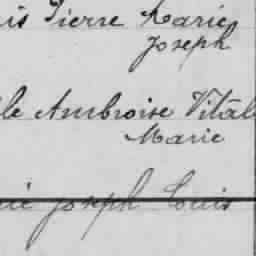 is Pierre Marie
Joseph
le Ambroise Vital
Marie
ie Joseph Louis